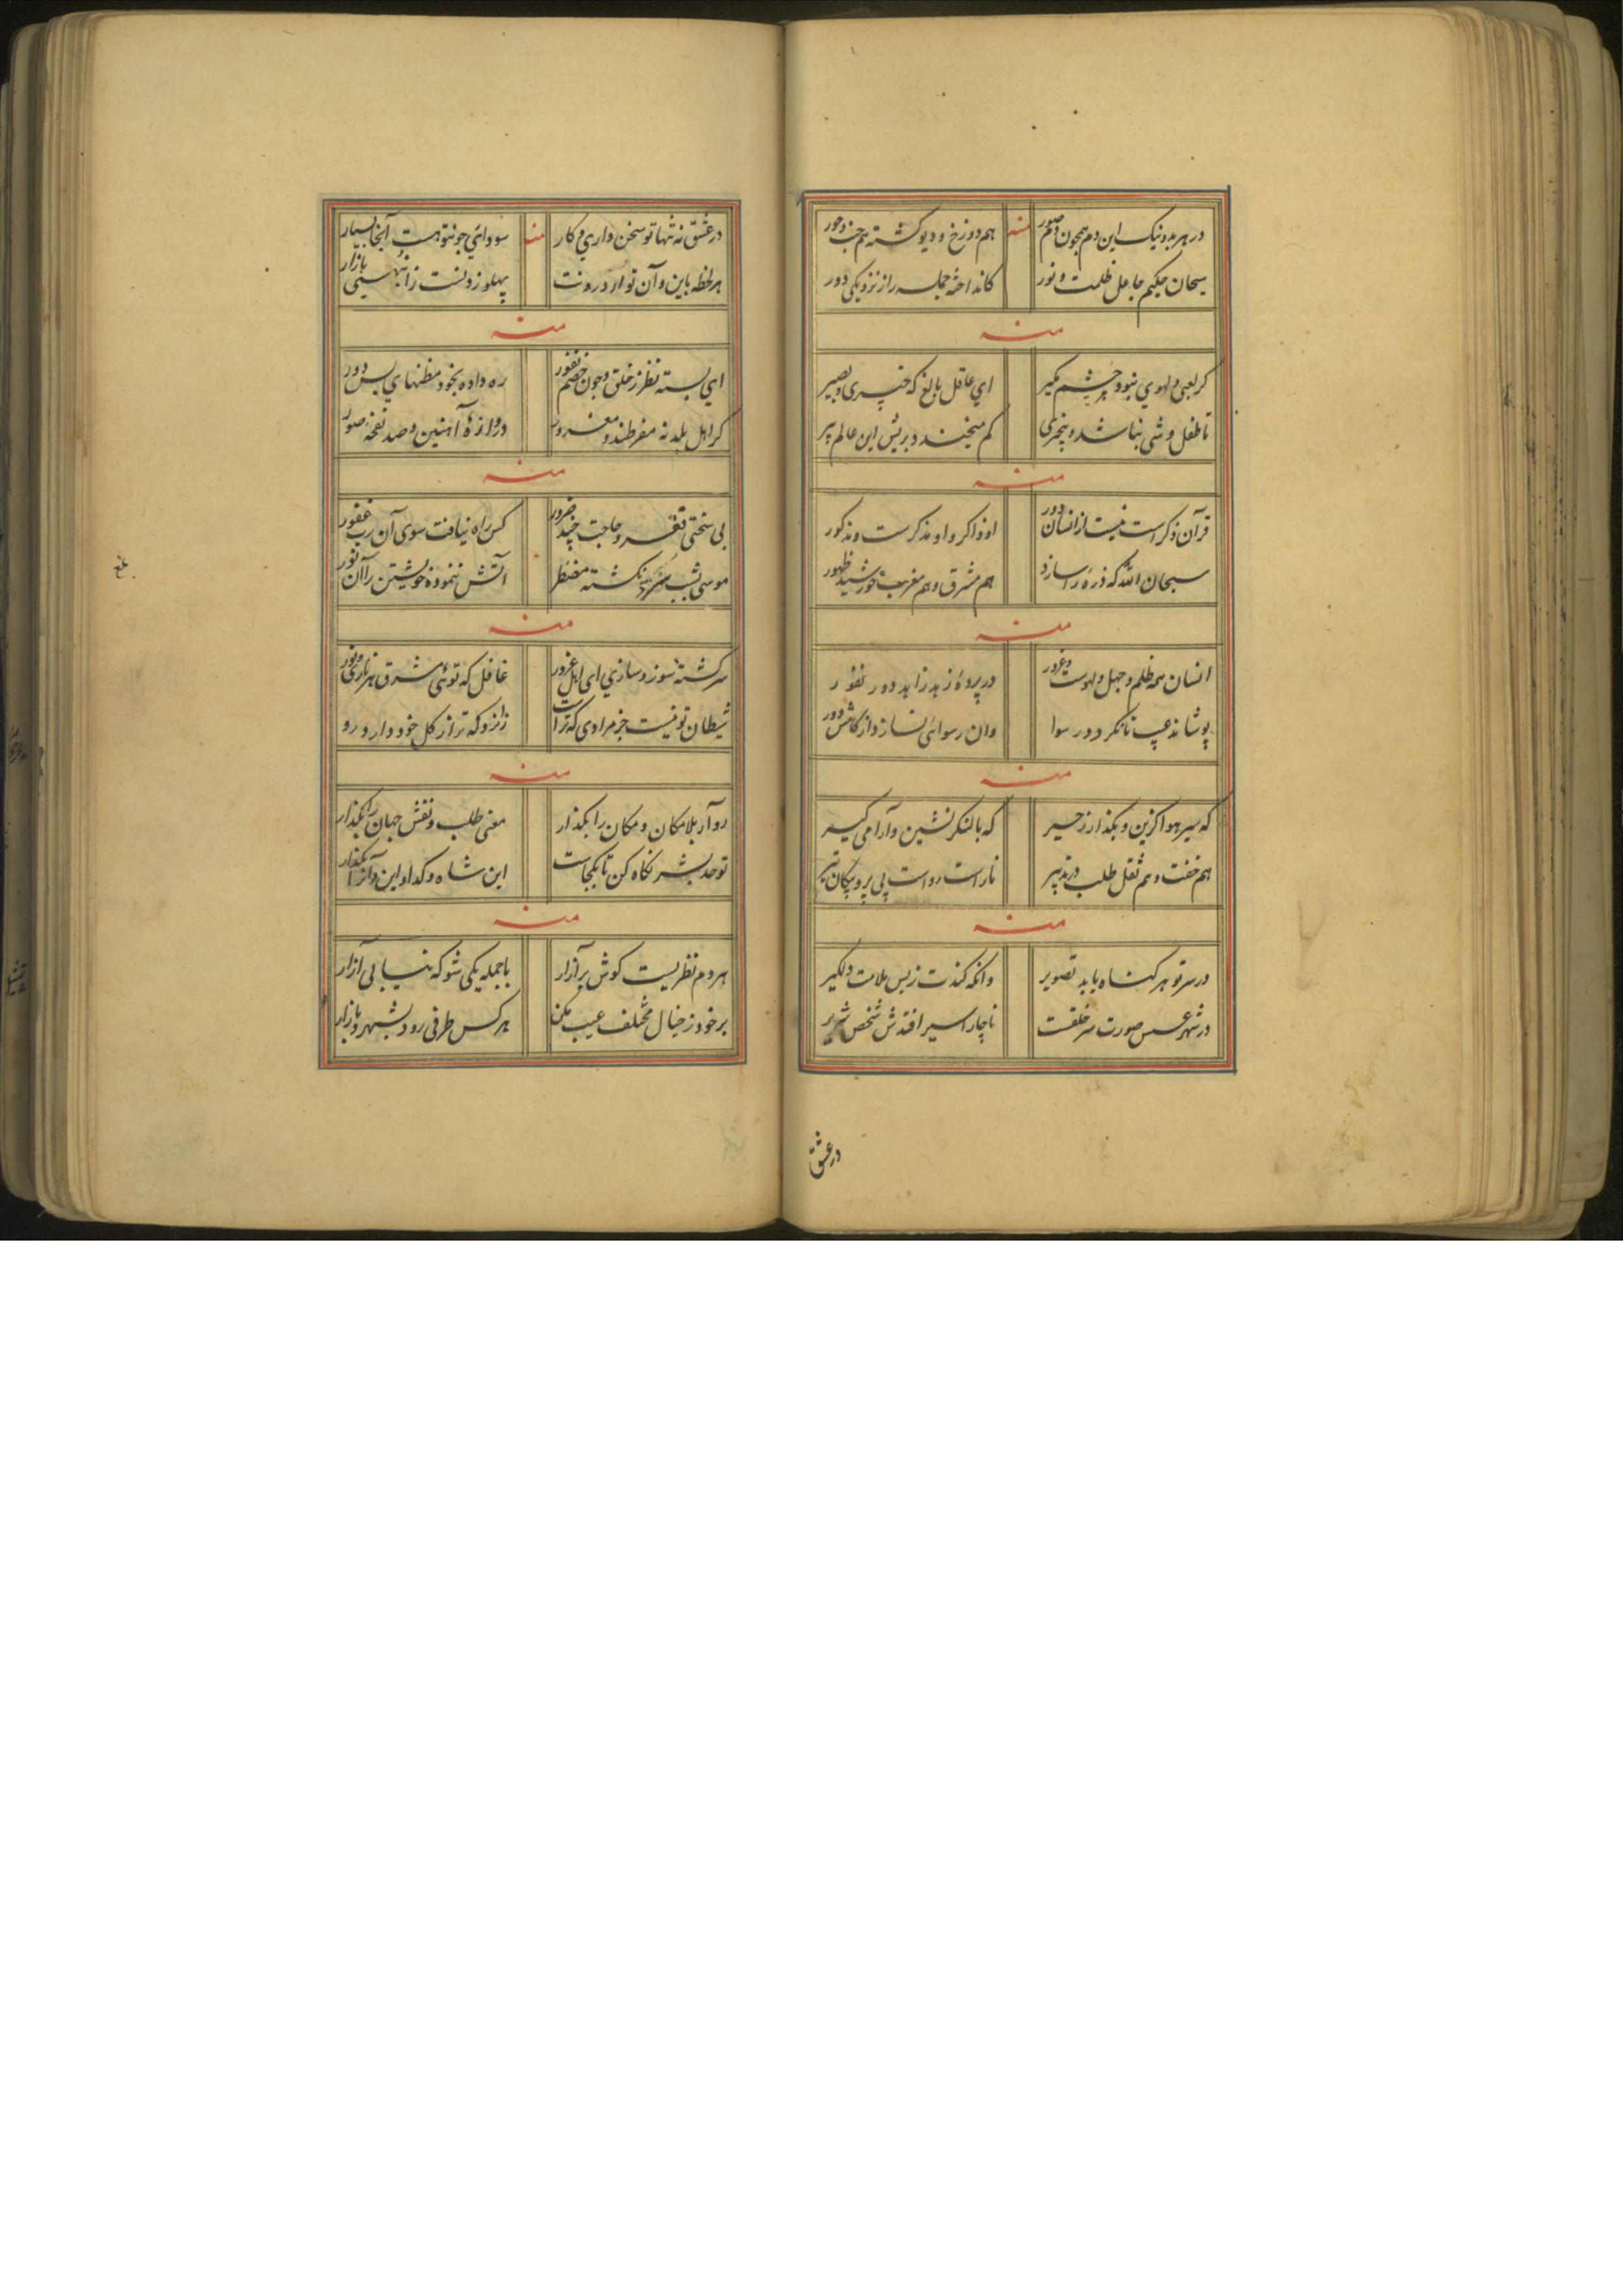 در هر بد و نیک این دم همچون دم صور منه هم دوزخ و دیو کشته هم جنت و حور
سبحان حکیم جاعل ظلمت و نور کانداخته جمله را ز نزدیکی دور
منه
کر لعبی و لهوی نبود چشم مکیر ای عاقل بالغ که خبیری و بصیر
تا طفل وشی نباشد و بیخبری کم میخندد بریش این عالم پیر
منه
قرآن ذکر است نیست از انسان دور او ذاکر و او مذکرست و مذکور
سبحان الله که ذره را سازد هم مشرق و هم مغرب خورشید ظهور
منه
انسان همه ظلم و جهل و لهوست و غرور در پرده زهد زاهد دور نفور
پوشاند عیب تا نکردد رسوا وان رسوائی نسازد از کاشش دور
منه
که سیر هوا کزین و بکذار زحیر که با لنکر نشین و آرامی کیر
هم خفت و هم ثقل طلب در تدبیر ناراست رواست بی پر و پیکان تیر
منه
در سر تو هر کناه یابد تصویر وانکه کندت ز بس ملامت دلکیر
در شهر عسس صورت سر خلقست ناچار اسیر افتدش شخص شریر
در عشق
در عشق نه تنها تو سخن داری و کار منه سودائی چو نتو هست آنجا بسیار
هر لحظه باین و آن تو از درونت پهلو زدنست زانبهی بازار
منه
ای بسته نظر ز خلق و چون خصم نفور ره داده بخود مظنهای بس دور
کر اهل بلد نه مفرطند و مغرور دروازه آهنین و صد نفخه صور
منه
بی سختی فقر و حاجت چند ضرور کس راه نیافت سوی آن رب غفور
موسی بشب نکشته مضطر آتش ننموده خویشتن را آن نور
منه
سر کشته سوز و سازی ای اهل غرور غافل که توئی مشرق هر ناری و نور
شیطان تو نیست جز مرادی که تراست زانرو که ترا ز کل خود دارد دور
منه
رو آر بلامکان و مکان را بکذار معنی طلب و نقش جهان را بکذار
توحد بشر نکاه کن تا بکجاست این شاه و کدا و این و آنرا بکذار
منه
هر دم نظریست کوش بر آزار با جمله یکی شو که نیابی آزار
بر خود ز خیال مختلف عیب مکن هر کس طرفی رود بشهر و بازار